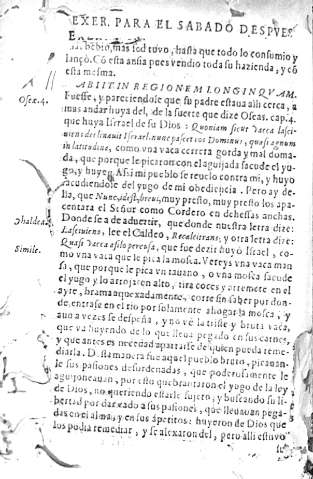 EXER. PARA EL SABADO DESPVES
bebio, mas sed tuvo, hasta que todo lo consumio y
lançò. Cõ esta ansia pues vendio toda su hazienda, y cõ
esta mesma.
ABIIT IN REGIONEM LONGINQVAM.
Fuesse, y pareciendole que su padre estaua alli cerca, a
Osex.4.
mas andar huya del, de la suerte que dize Oseas. cap.4.
que huya Israel de su Dios: Quoniam sicut vacca lasci-
uiens declinauit Israel. nunc pascet eos Dominus, quasi agnum
in latitudine, como vna vaca cerrera gorda y mal doma-
da, que porque le picaron con el aguijada sacude el yu-
go, y huye. Assi mi pueblo se reuelo contra mi, y huyo
sacudiendose del yugo de mi obediencia. Pero ay de-
lla, que Nunc, idest, breui, muy presto, muy presto los apa-
centara el Señor como Cordero en dehessas anchas.
Donde se a de aduertir, que donde nuestra letra dize:
haldea.
Lasciuiens, lee el Caldeo, Recalcitrans; y otra letra dize:
Quasi vacca asilo percussa, que fue dezir huyò Israel, co-
Simile.
mo vna vaca que le pica la mosca. Vereys vna vaca man
sa, que porque le pica vn tauano, o vna mosca sacude
el yugo y lo arroja en alto, tira coces y arremete en el
ayre, brama aquexadamente, corre sin saber por don-
de, entrase en el rio por solamente ahogar la mosca, y
aun a vezes se despeña, y no vè la triste y bruta vaca,
que va huyendo de lo que lleua pegado en sus carnes,
y que antes es necedad apartarse de quien pueda reme-
diarla. Desta manera fue aquel pueblo bruto, picauan-
le sus passiones desordenadas, que poderosamente le
aguijoneauan, por esto quebrantaron el yugo de la ley
de Dios, no queriendo estarle sujeto, y buscando su li-
bertad por dar vado a sus passiones, que lleuauan pega-
das en el alma, y en sus apetitos: huyeron de Dios que
los podia remediar, y se alexaron del, pero alli estuvo